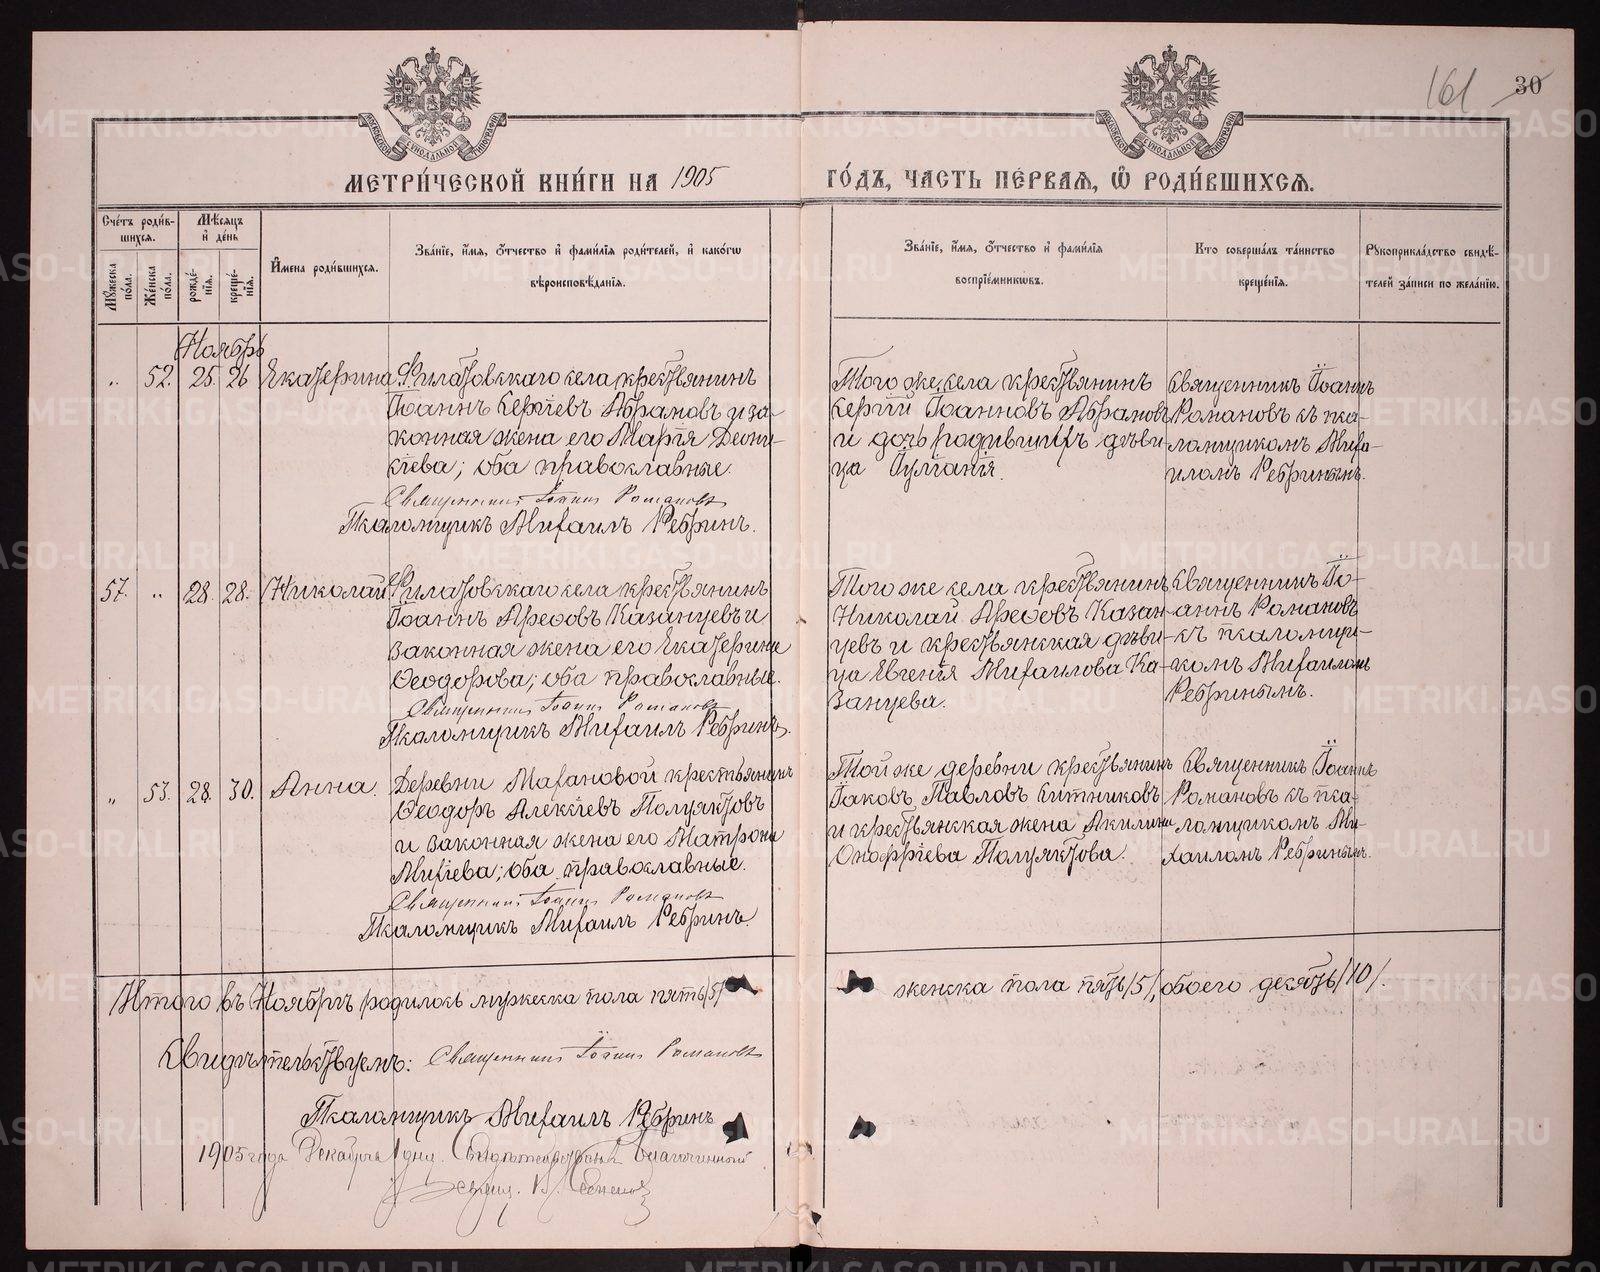 161 30
МОСКОВСКОЙ СѴНОДАЛЬНОЙ ТИПОГРАФІИ
МОСКОВСКОЙ СѴНОДАЛЬНОЙ ТИПОГРАФІИ
МЕТРИ́ЧЕСКОЙ КНИ́ГИ НА 1905
ГО́ДЪ, ЧАСТЬ ПЕ́РВАЯ, Ѽ РОДИ́ВШИХСЯ.
Сче́тъ роди́в-
шихся.
Мѣ́сяцъ
и҆ де́нь
Мꙋ́жеска по́ла.
Же́нска по́ла.
рожде́-
нїя.
креще́-
нїя.
И҆мена роди́вшихся.
Зва́нїе, и҆́мя, ѻ҆́тчество и҆ фами́лїя роди́телей, и҆ како́гѡ
вѣроисповѣ́данїя.
Зва́нїе, и҆́мя, ѻ҆́тчество и҆ фами́лїя
воспрїе́мникѡвъ.
Кто соверша́лъ та́инство
креще́нїя.
Рꙋкоприкла́дство свидѣ́-
телей за́писи по жела́нїю.
Ноябрь
„ 52. 25. 26 Екатерина
Филатовскаго села крестьянинъ
Іоаннъ Сергіевъ Абрамовъ и за-
конная жена его Марія Діони-
сіева; оба православные.
Священникъ Іоаннъ Романовъ
Псаломщикъ Михаилъ Ребринъ.
Того же села крестьянинъ
Сергій Іоанновъ Абрамовъ
и дочь родившихъ дѣви-
ца Іуліанія.
Священникъ Іоаннъ
Романовъ съ пса-
ломщикомъ Миха-
иломъ Ребринымъ.
57. „ 28. 28. Николай
Филатовскаго села крестьянинъ
Іоаннъ Арефовъ Казанцевъ и
законная жена его Екатерина
Ѳеодорова; оба православные.
Священникъ Іоаннъ Романовъ
Псаломщикъ Михаилъ Ребринъ.
Того же села крестьянинъ
Николай Арефовъ Казан-
цевъ и крестьянская дѣви-
ца Евгенія Михаилова Ка-
занцева.
Священникъ Іо-
аннъ Романовъ
съ псаломщи-
комъ Михаиломъ
Ребринымъ.
„ 53. 28. 30. Анна.
Деревни Махановой крестьянинъ
Ѳеодоръ Алексіевъ Полуяктовъ
и законная жена его Матрона
Михіева; оба православные.
Священникъ Іоаннъ Романовъ
Псаломщикъ Михаилъ Ребринъ.
Той же деревни крестьянинъ
Іаковъ Павловъ Ситниковъ
и крестьянская жена Акилина
Онофріева Полуяктова.
Священникъ Іоаннъ
Романовъ съ пса-
ломщикомъ Ми-
хаиломъ Ребринымъ.
Итого въ Ноябрѣ родилось мужеска пола пять /5/
женска пола пять /5/, обоего десять /10/.
Свидѣтельствуемъ: Священникъ Іоаннъ Романовъ
Псаломщикъ Михаилъ Ребринъ
1905 года Декабря 1 дня. Свидѣтельствовалъ Благочинный
Священ.
METRIKI.GASO-URAL.RU